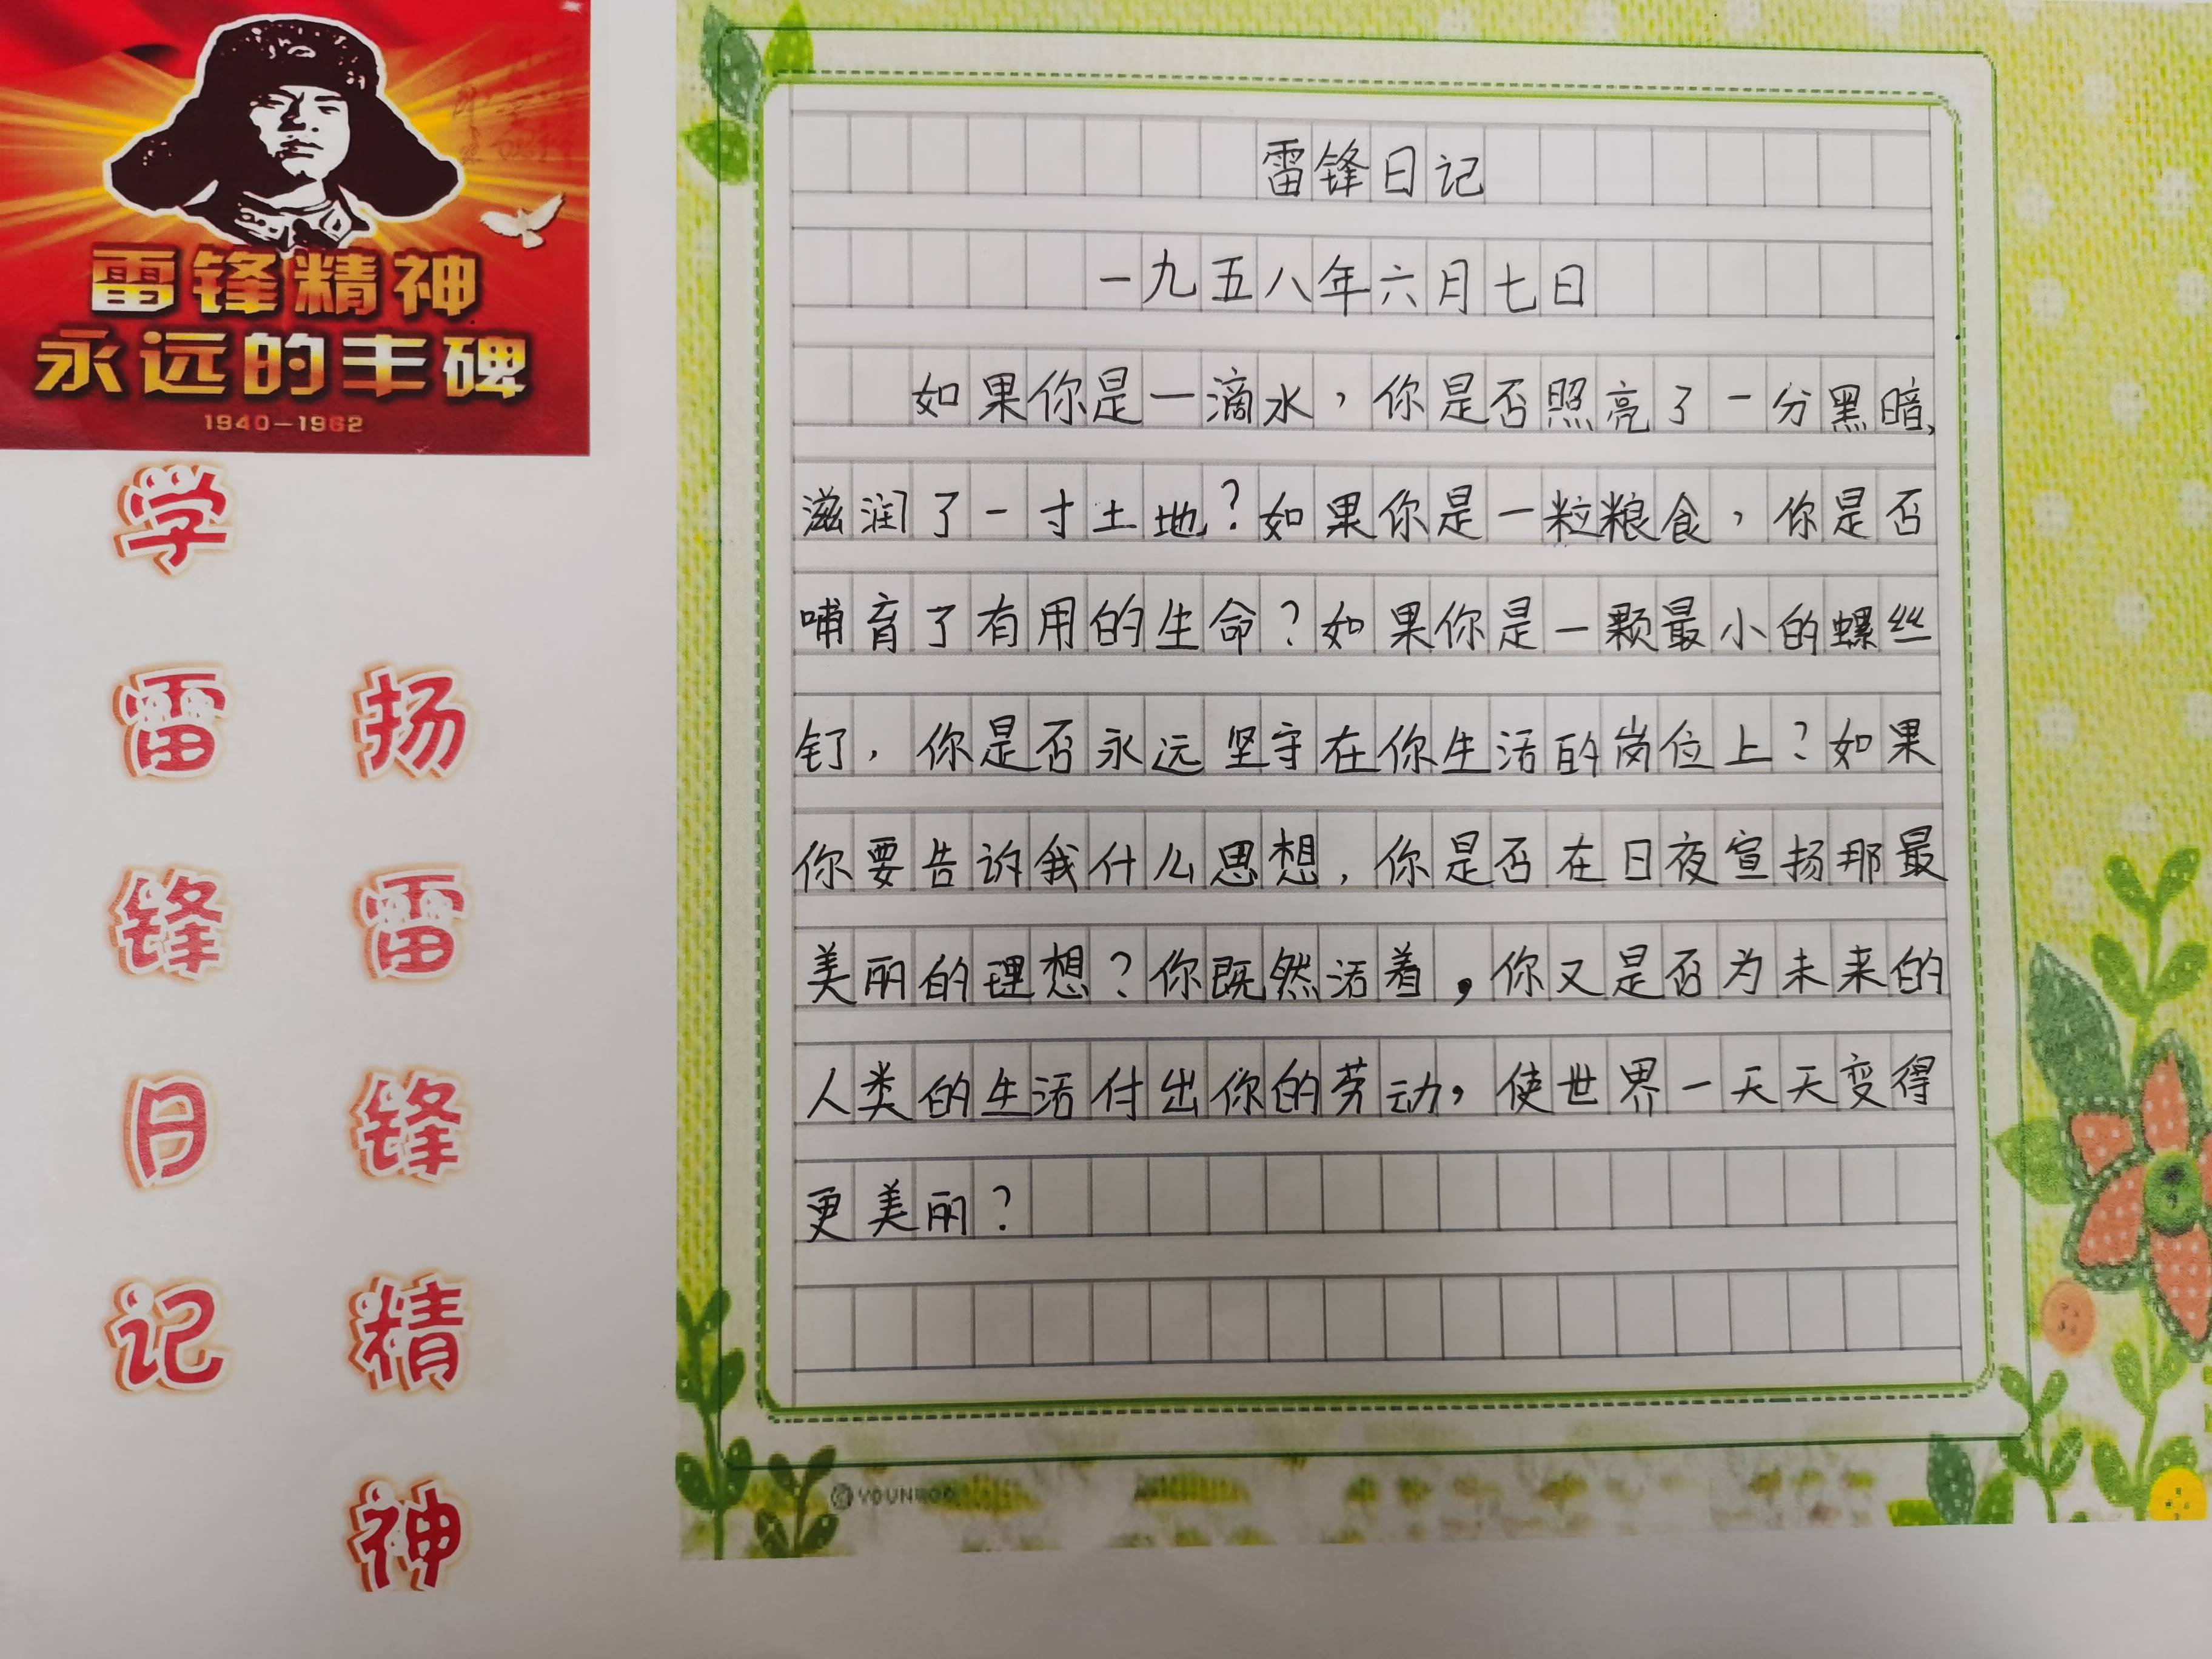 雷锋精神
永远的丰碑
1940-1962
学雷锋日记
扬雷锋精神
雷锋日记
一九五八年六月七日
如果你是一滴水，你是否照亮了一分黑暗，
滋润了一寸土地？如果你是一粒粮食，你是否
哺育了有用的生命？如果你是一颗最小的螺丝
钉，你是否永远坚守在你生活的岗位上？如果
你要告诉我什么思想，你是否在日夜宣扬那最
美丽的理想？你既然活着，你又是否为未来的
人类的生活付出你的劳动，使世界一天天变得
更美丽？